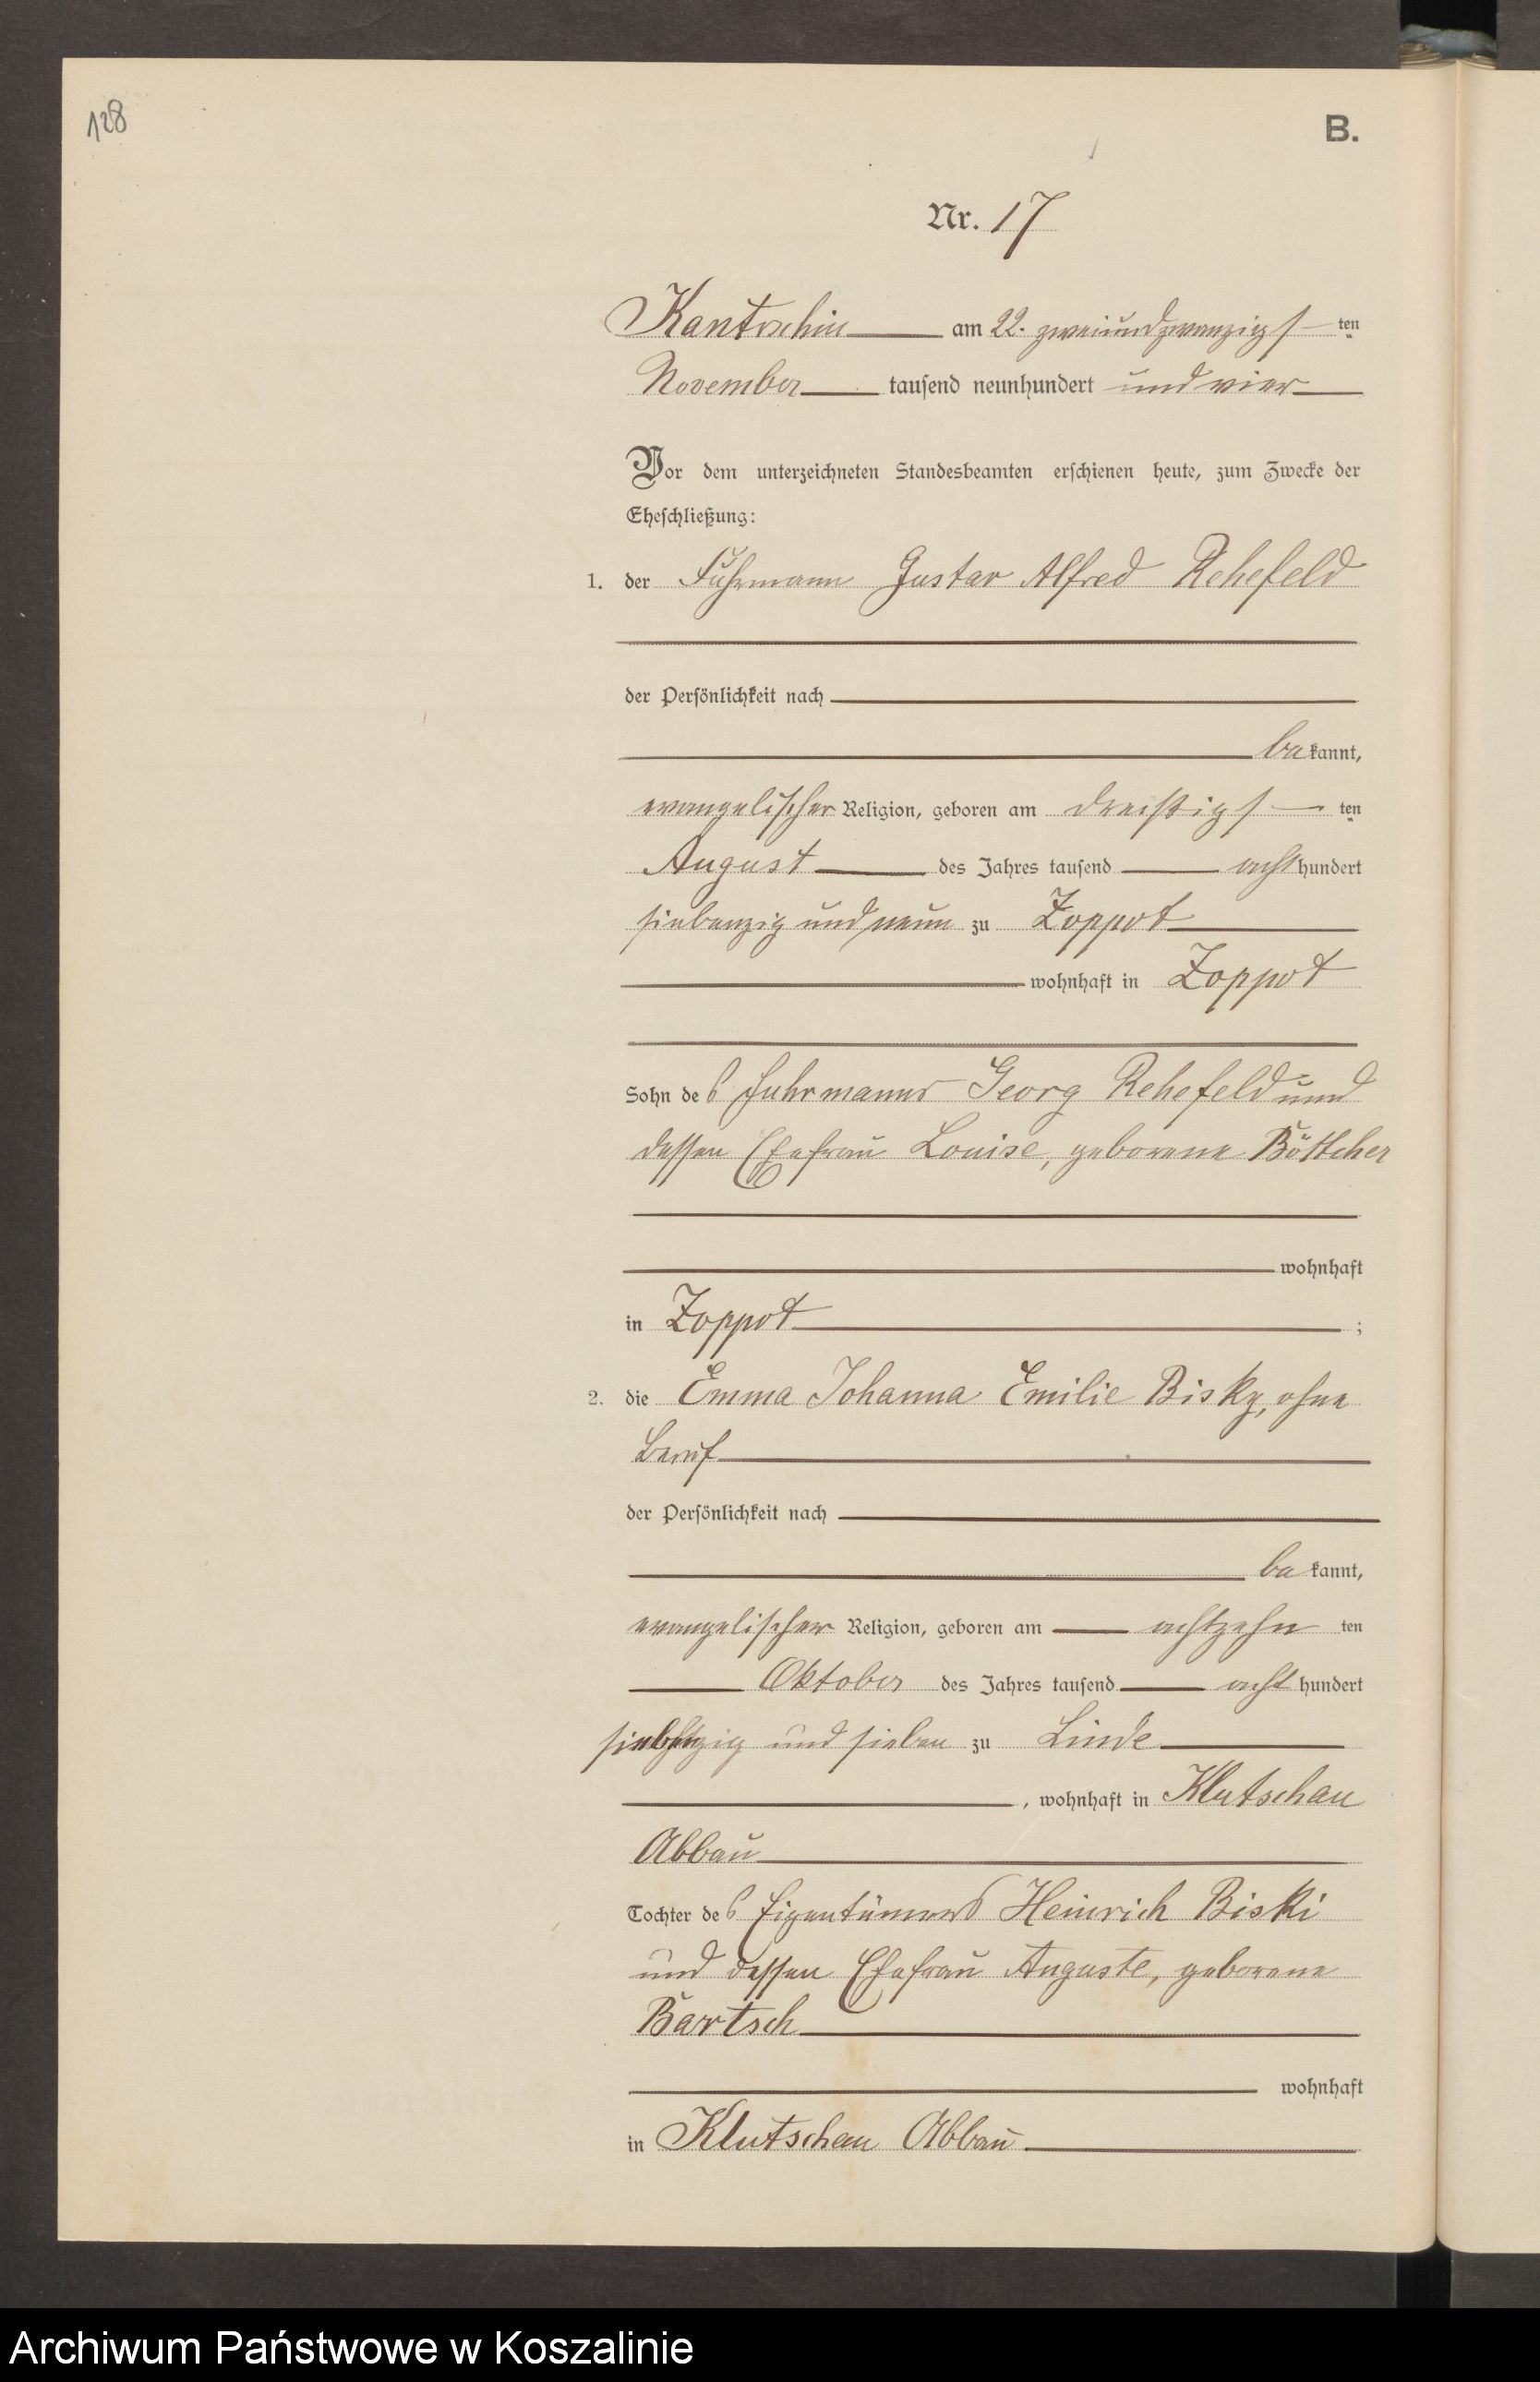 128
B.
Nr. 17
Kantrschin am 22. zweiundzwanzigs ten
November tausend neunhundert und vier
Vor dem unterzeichneten Standesbeamten erschienen heute, zum Zwecke der
Eheschließung:
1. der Fuhrmann Gustav Alfred Rehefeld
der Persönlichkeit nach
be kannt,
evangelischer Religion, geboren am dreißigs ten
August des Jahres tausend acht hundert
siebenzig und neun zu Zoppot
wohnhaft in Zoppot
Sohn des Fuhrmanns Georg Rehefeld und
dessen Ehefrau Louise, geborene Böttcher
wohnhaft
in Zoppot ;
2. die Emma Johanna Emilie Bisky, ohne
Beruf
der Persönlichkeit nach
be kannt,
evangelischer Religion, geboren am achtzehn ten
Oktober des Jahres tausend acht hundert
und sieben zu Linde
, wohnhaft in Klutschau
Abbau
Tochter des Eigentümers Heinrich Biski
und dessen Ehefrau Auguste, geborene
Bartsch
wohnhaft
in Klutschau Abbau
Archiwum Państwowe w Koszalinie